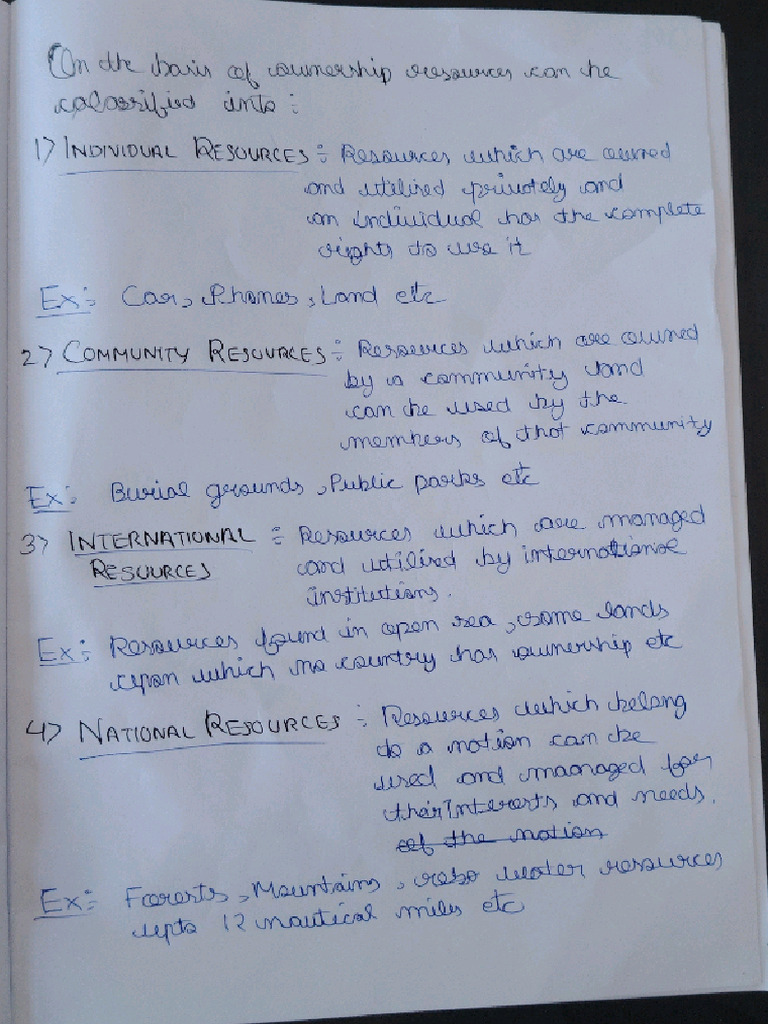 On the basis of ownership resources can be
classified into :
1) INDIVIDUAL RESOURCES :- Resources which are owned
and utilised privately and
an individual has the complete
rights to use it
Ex:- Car, Phones, Land etc
2) COMMUNITY RESOURCES :- Resources which are owned
by a community and
can be used by the
members of that community
Ex:- Burial grounds, Public parks etc
3) INTERNATIONAL :- Resources which are managed
RESOURCES and utilised by international
institutions.
Ex:- Resources found in open sea, some lands
upon which no country has ownership etc
4) NATIONAL RESOURCES :- Resources which belong
to a nation can be
used and maanaged for
their interests and needs.
of the nation
Ex:- Forests, Mountains, water resources
upto 12 nautical miles etc